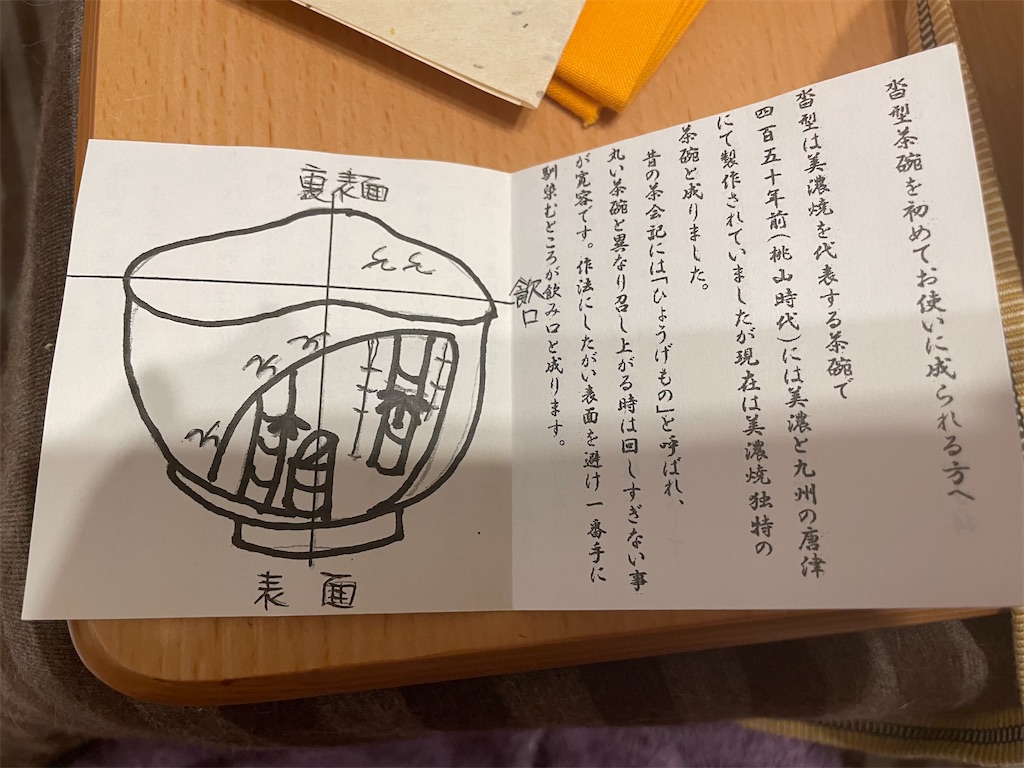 沓型茶碗を初めてお使いに成られる方へ
沓型は美濃焼を代表する茶碗で
四百五十年前(桃山時代)には美濃と九州の唐津
にて製作されていましたが現在は美濃焼独特の
茶碗と成りました。
昔の茶会記には「ひょうげもの」と呼ばれ、
丸い茶碗と異なり召し上がる時は回しすぎない事
が寛容です。作法にしたがい表面を避け一番手に
馴染むところが飲み口と成ります。
裏表面
飲口
表面